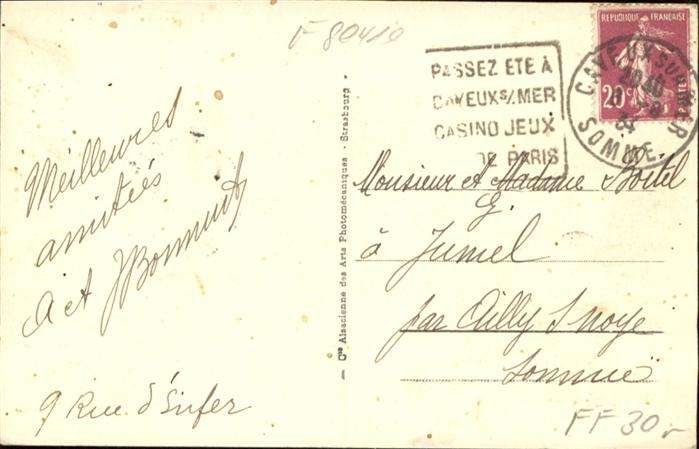 F 80410
PASSEZ ETE À
CAYEUX S/ MER
CASINO JEUX
PARIS
REPUBLIQUE FRANÇAISE
20c
CAYEUX SUR MER
34
SOMME
Meilleures
amitiés
A et J Bonnund
9 Rue d'Enfer
Cie Alsacienne des Arts Photomécaniques - Strasbourg
Monsieur et Madame Boitel
G
à Jumel
par Ailly S Noye
Somme
FF 30